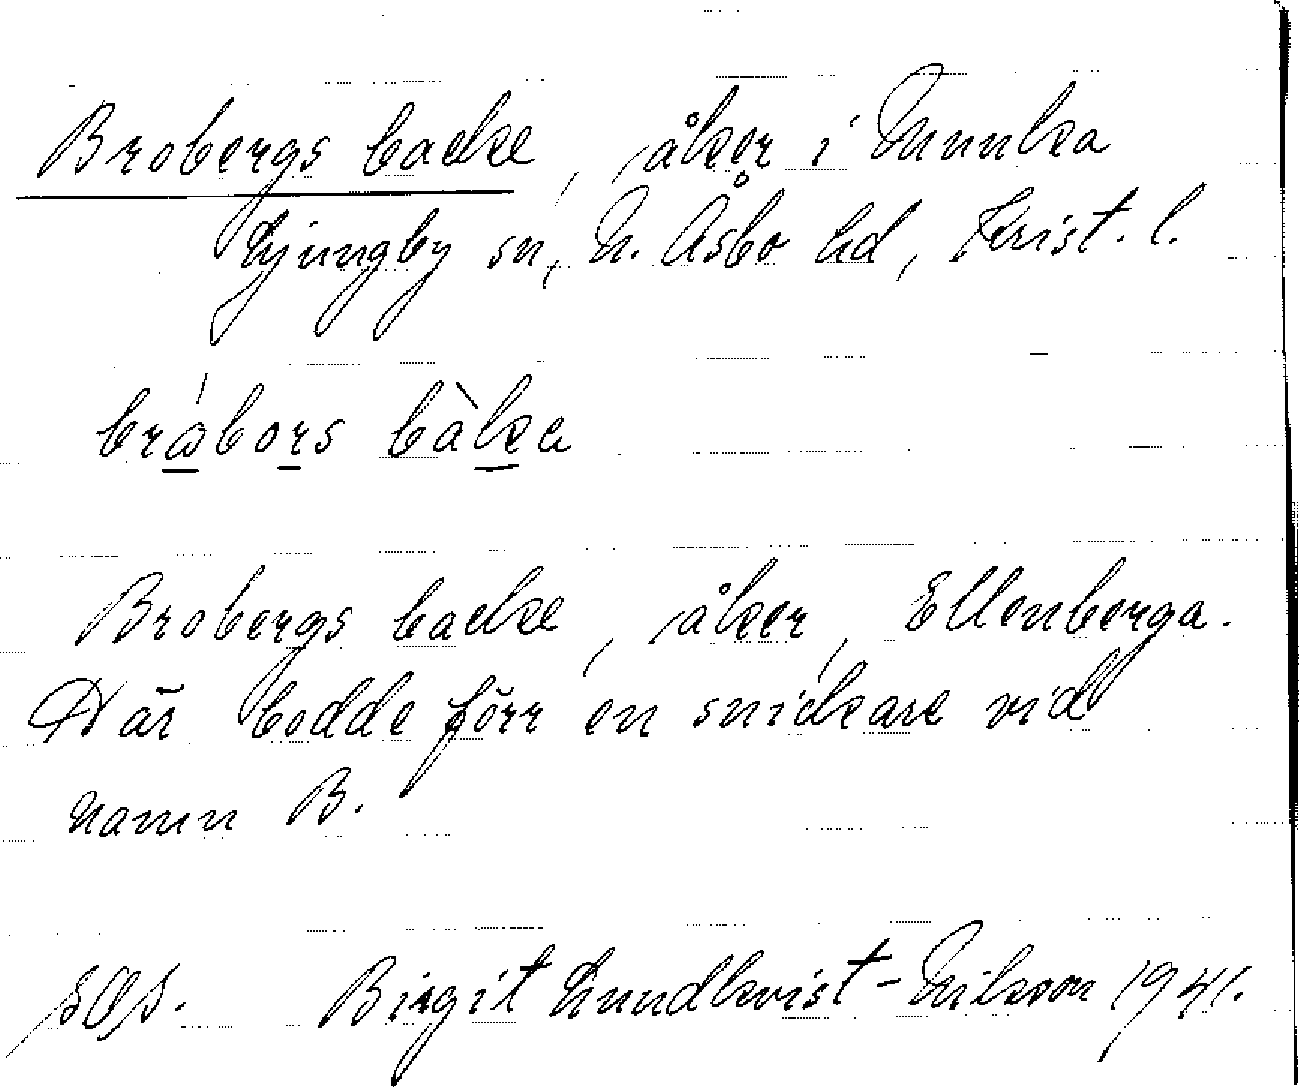 Brobergs backe, åker i Munka
Ljungby sn, N. Åsbo hd, Krist. l.
bråbors bàka
Brobergs backe, åker, Ellenberga.
Där bodde förr en snickare vid
namn B.
Birgit Lundkvist-Nilsson 1941.